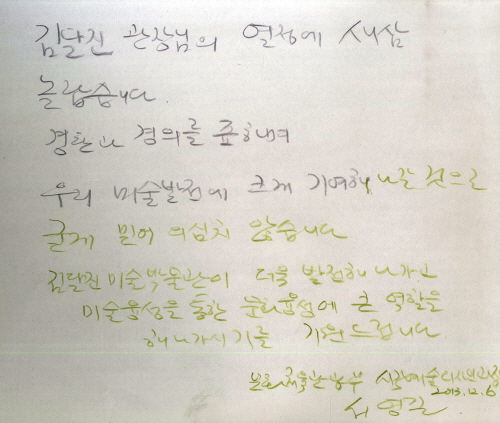 김달진 관장님의 열정에 새삼
놀랍습니다.
경탄과 경의를 표하며
우리 미술발전에 크게 기여해 나갈 것으로
굳게 믿어 의심치 않습니다
김달진미술박물관이 더욱 발전해 나가고
미술융성을 통한 문화융성에 큰 역할을
해 나가시기를 기원드립니다.
문화체육관광부 시각예술디자인과장
2013.12.6
서영길